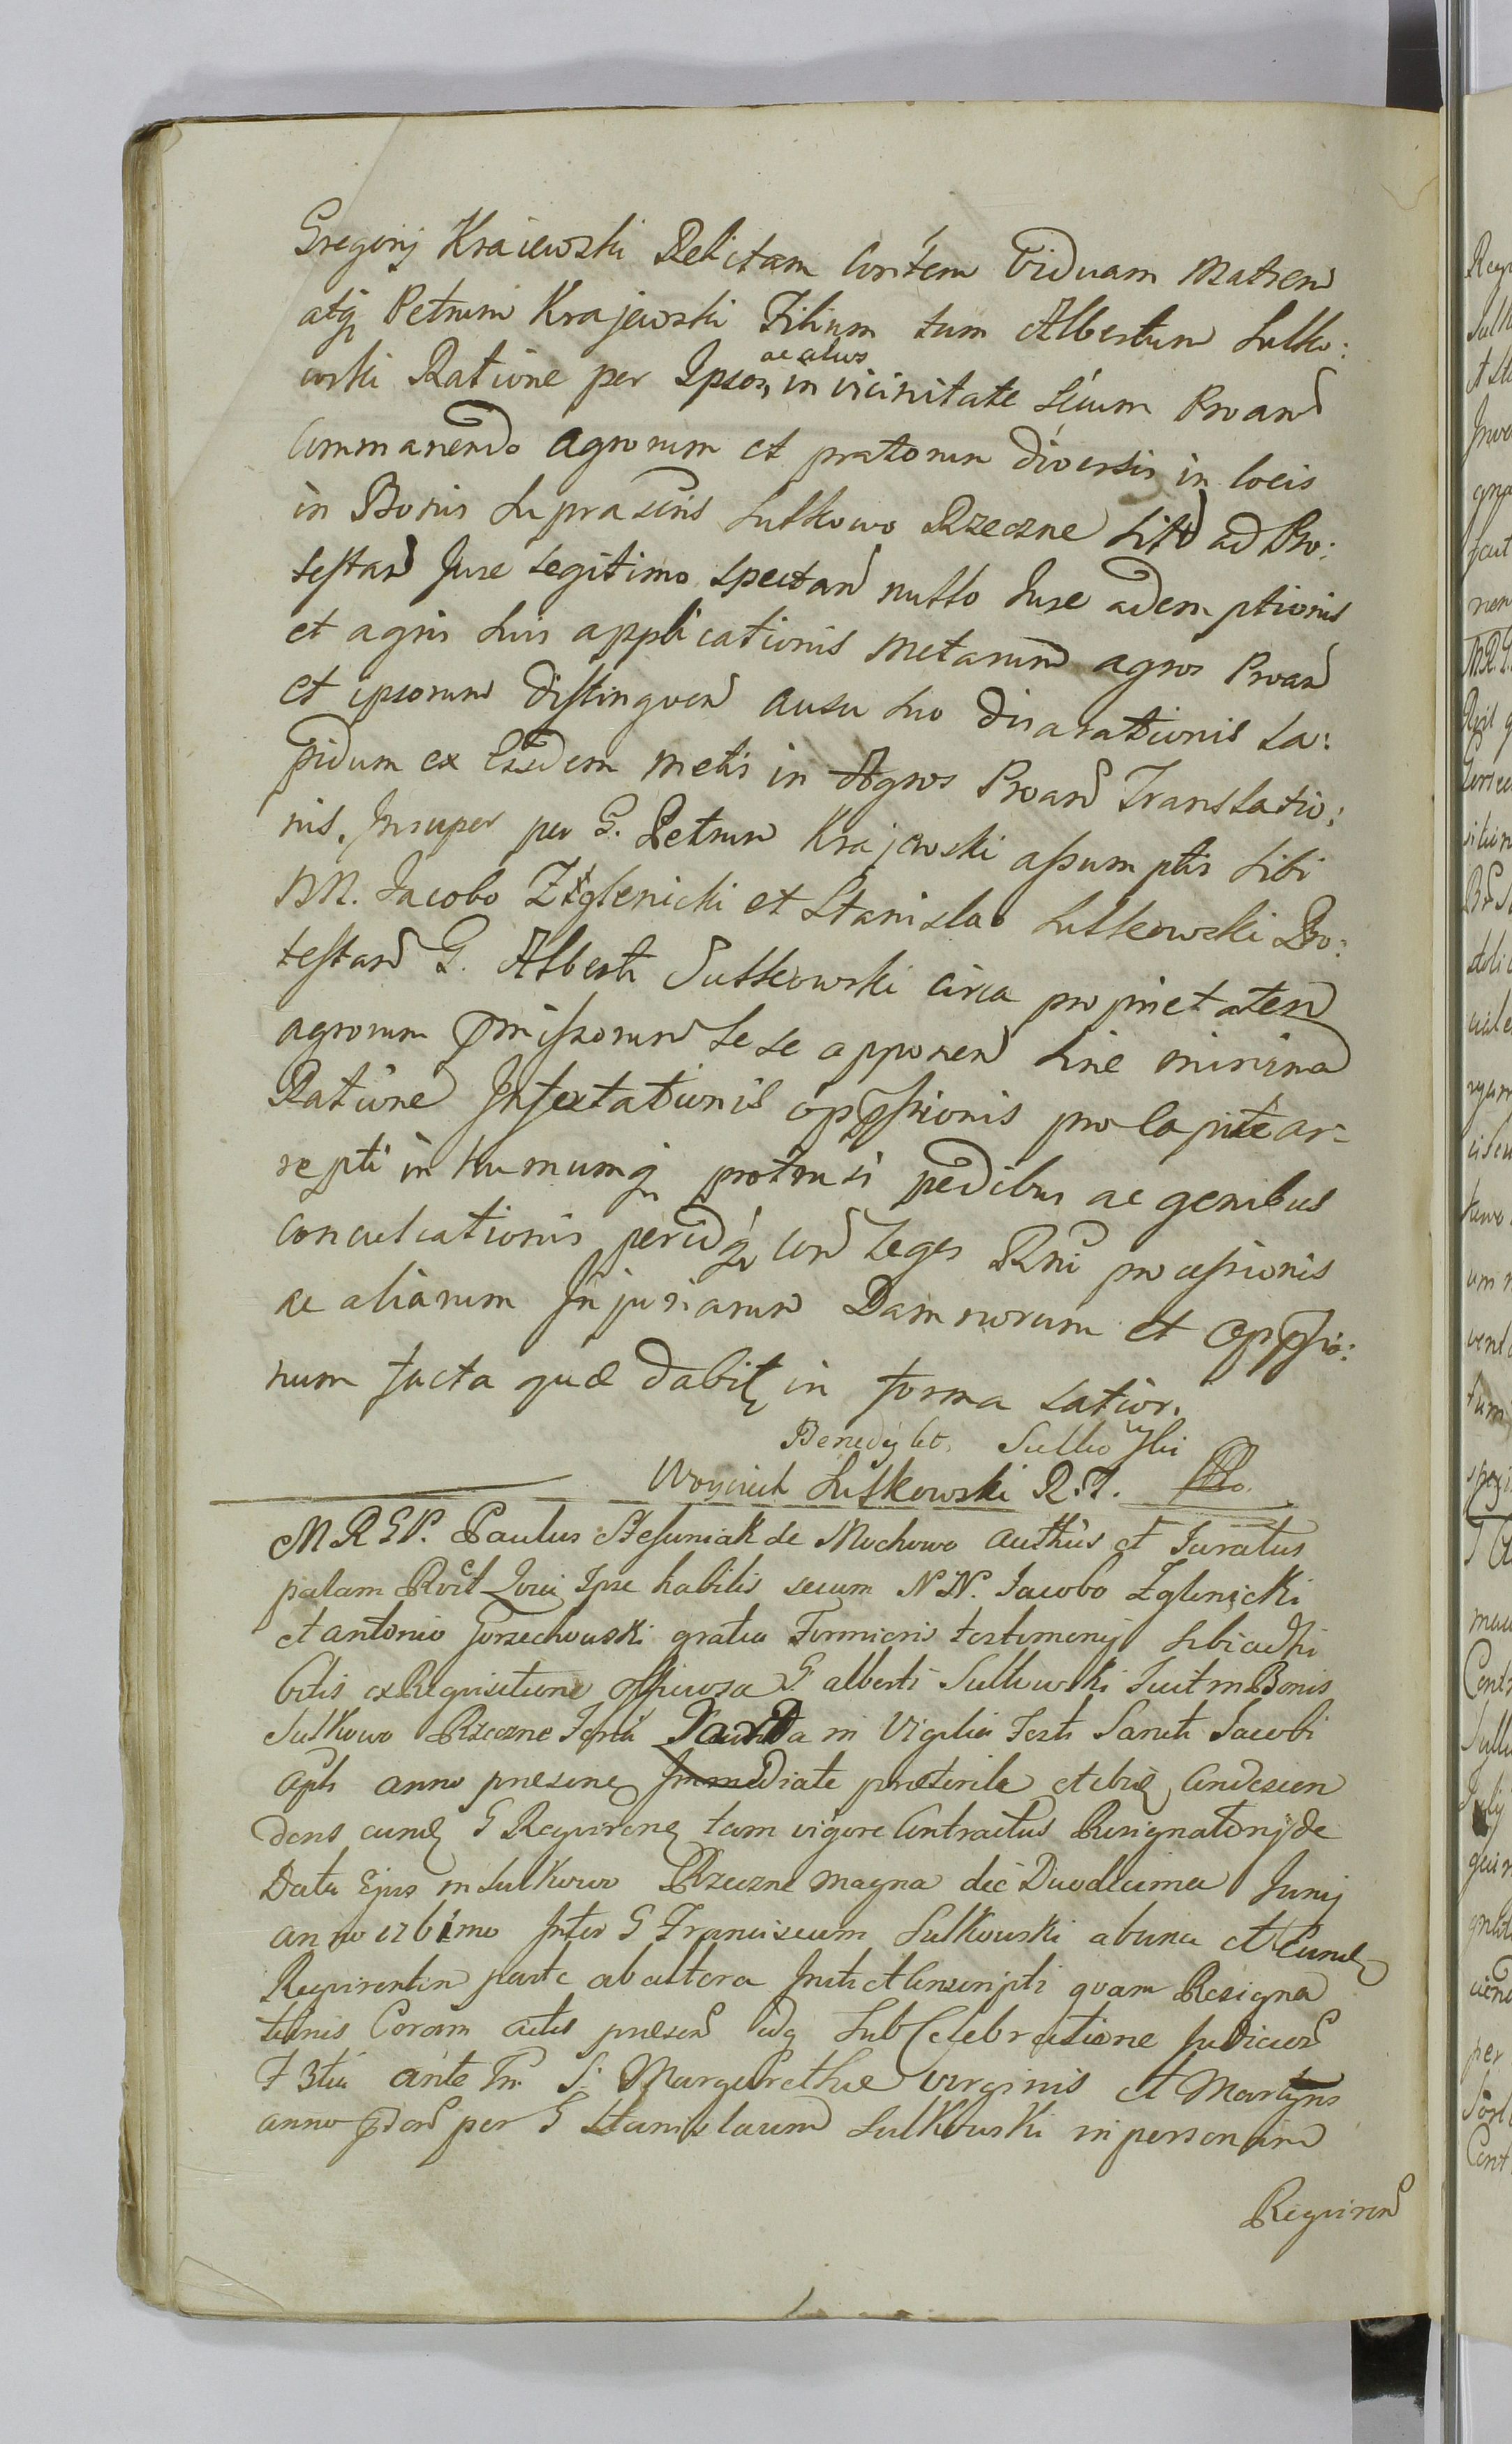 Gregorij Krajewski Relictam Consortem Viduam Matrem
atq Petrum Krajewski Filium tum Albertum Sulko:
wski Ratione per Ipsos ac alios in vicinitate secum Proand
Commanend Agrorum et pratorum diversis in locis
in Bonis supra scris Sulkowo Rzeczne sito ad Pro:
testand Jure legitimo spectand nullo Jure ademptionis
et agris suis applicationis Metarum agros Proand
et ipsorum distinguend ausu suo disarationis La:
pidum ex Eisdem metis in Agros Proand Translatio:
nis. Insuper per G. Petrum Krajewski assumptis sibi
NN. Jacobo Zglenicki et Stanislao Sulkowski Pro:
testand G. Alberti Sulkowski circa proprietatem
agrorum pmissorum sese apponend sine minima
Ratione Insectationis oppssionis pro Capite ar-
repti in humumq protrusi pedibus ac genibus
conculcationis periclq con Leges Rni processionis
ac aliarum Injuriarum Damnorum et Oppssio:
num facta quæ dabit in forma latior.
Benedykt Sulkowski
Woyciech Sulkowski R. T.
MRGP. Paulus Stefuniak de Mochowo Authus et Juratus
palam Rect Quia Ipse habitis secum NN. Jacobo Zglenicki
et Antonio Gorzechowski gratia Firmioris testimonij sibi adhi
bitis ex Requisitione officiosa G Alberti Sulkowski Fuit in Bonis
Sulkowo Rzeczne Feria in Vigilia Festi Sancti Jacobi
Apli anno præsene Immediate præterila et ibid Condescen
dens eund G Requirene tam vigore Contractus Resignatorij de
Data Ejus in Sulkowo Rzeczne magna die Duodecima Junij
anno 1761mo Inter G Franciscum Sulkowski ab una et Eund
Requirentem parte ab altera Initi et Conscripti quam Resigna
tionis Coram actis præsend idq sub Celebratione Judicior
F 3tia ante Fm S. Margarethæ Virginis et Martyris
anno per G Stanislaum Sulkowski in personam
Requirend